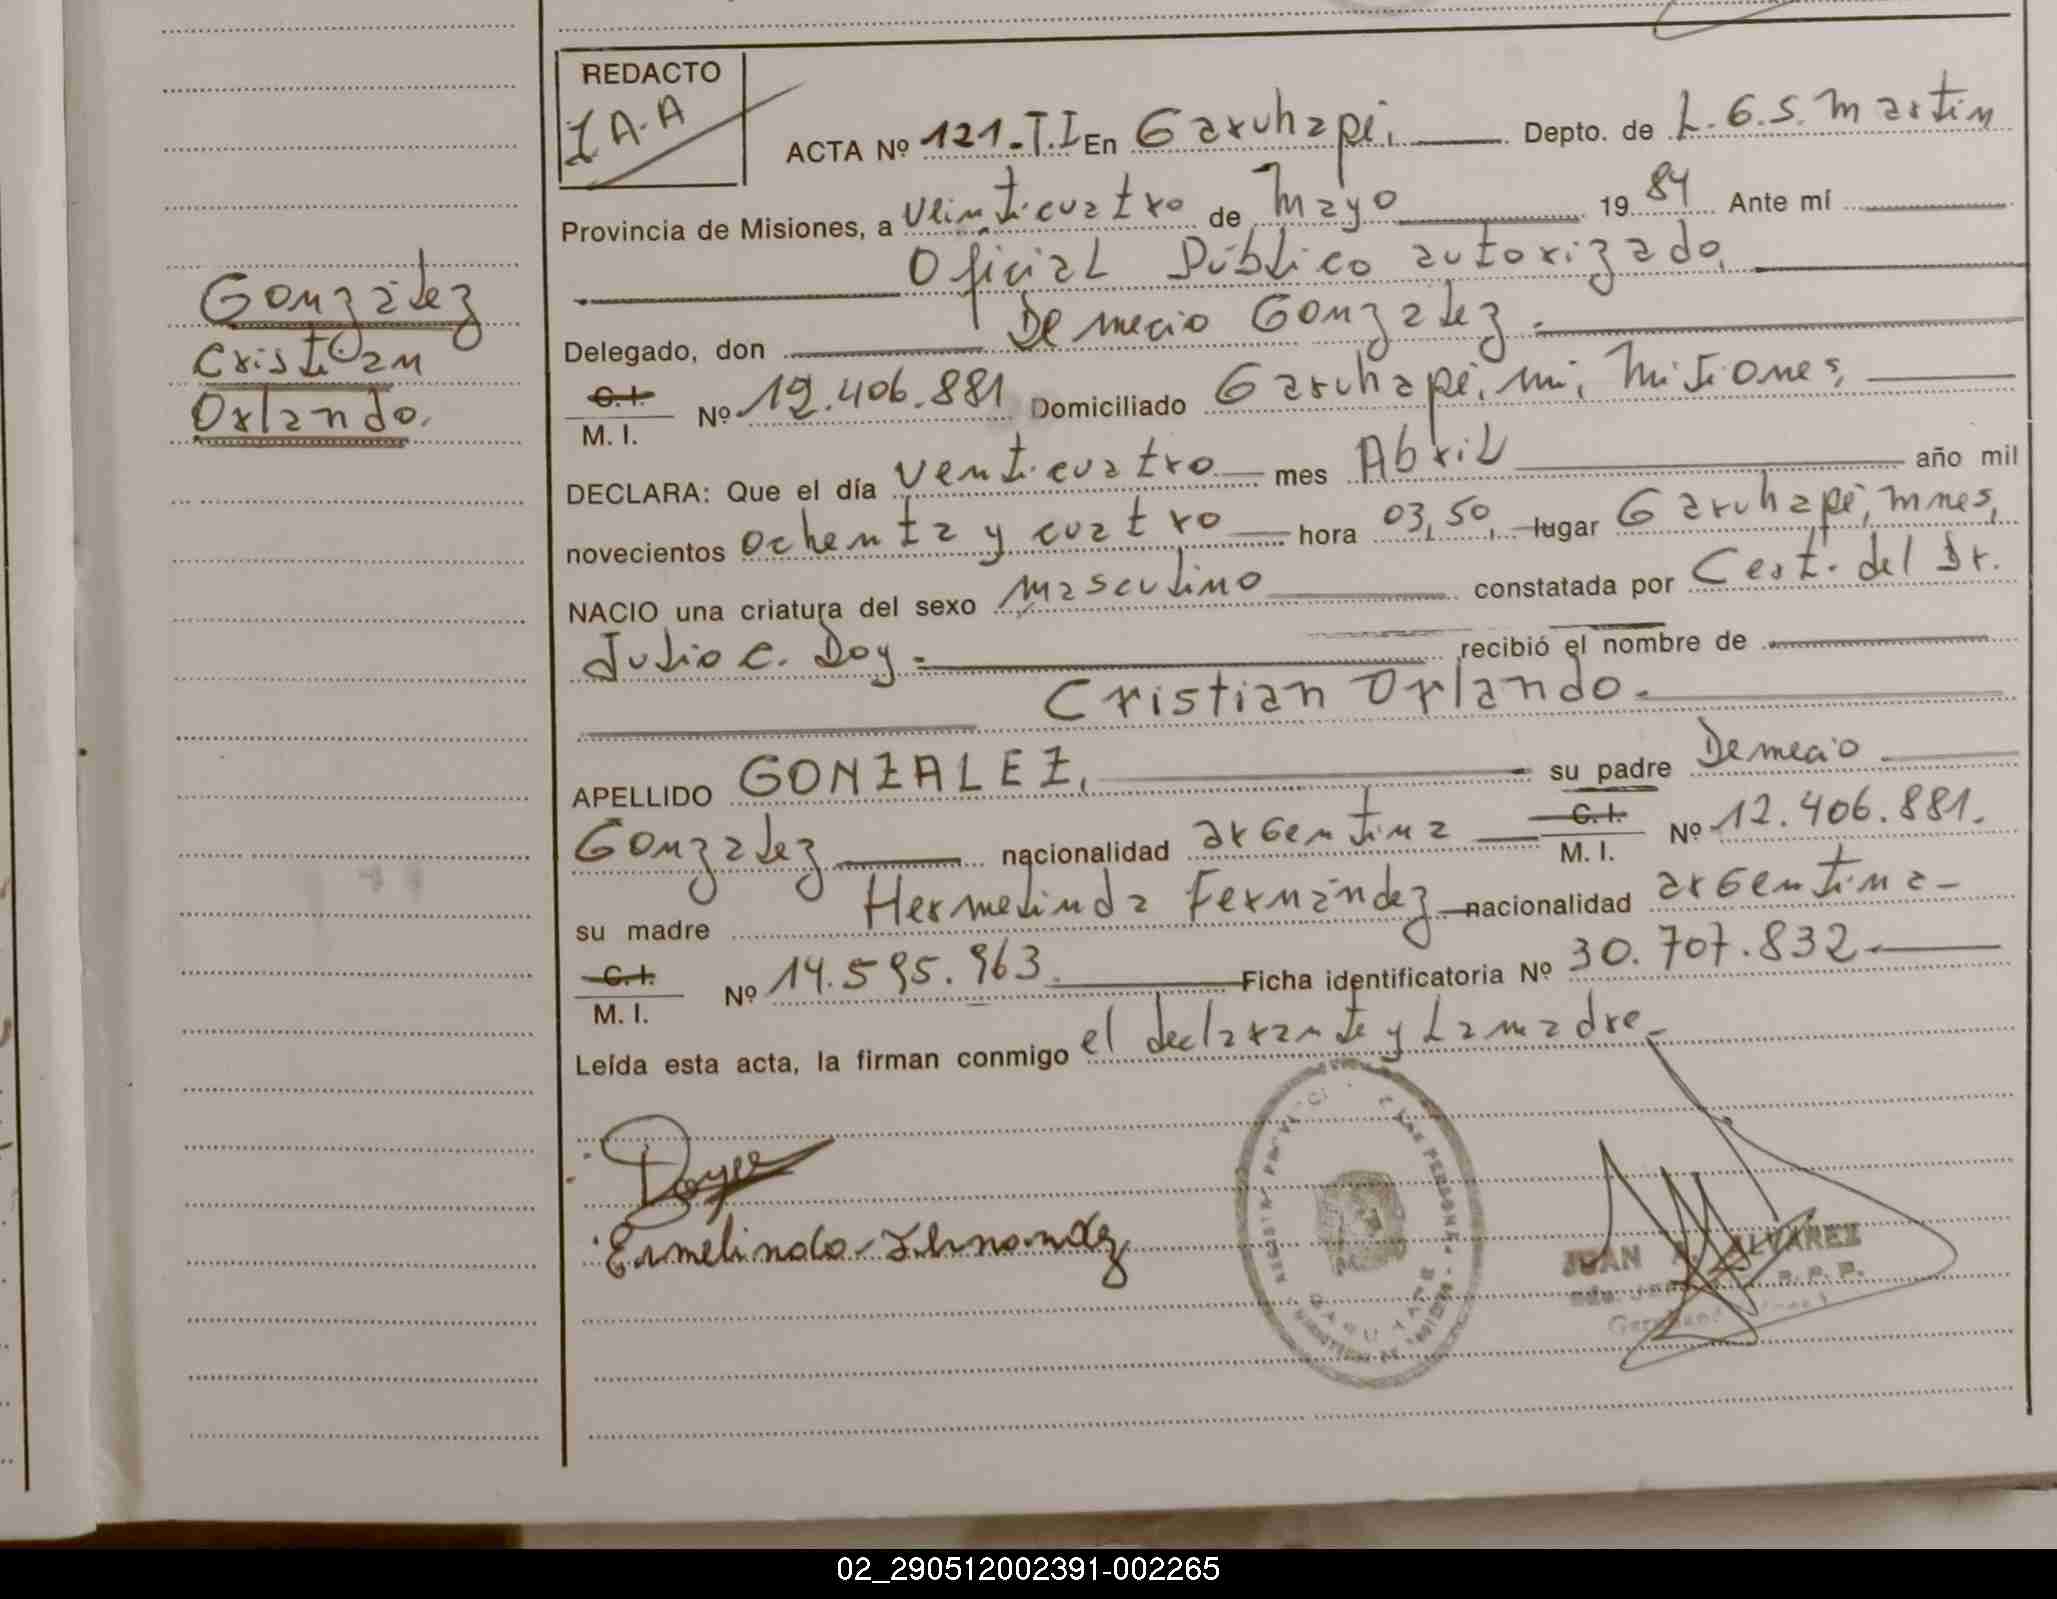 REDACTO
I A.A
ACTA Nº 121-T.I En Garuhapé, Depto. de L.G.S. Martin
Provincia de Misiones, a Veinticuatro de Mayo 19 84 Ante mí
Oficial Público autorizado,
Delegado, don Demecio González.
C.I. M.I. Nº 12.406.881 Domiciliado Garuhapé, mi, Misiones,
DECLARA: Que el día Venticuatro mes Abril año mil
novecientos ochenta y cuatro hora 03,50, lugar Garuhapé, mnes,
NACIO una criatura del sexo masculino constatada por Cert. del Dr.
Julio C. Doy. recibió el nombre de
Cristian Orlando.
APELLIDO GONZALEZ, su padre Demecio
González nacionalidad argentina C.I. M.I. Nº 12.406.881.
su madre Hermelinda Fernández nacionalidad argentina
C.I. M.I. Nº 14.595.963. Ficha identificatoria Nº 30.707.832
Leída esta acta, la firman conmigo el declarante y La madre.
González
Cristian
Orlando.
Ermelinda Fernandez
JUAN ALVAREZ
02_290512002391-002265